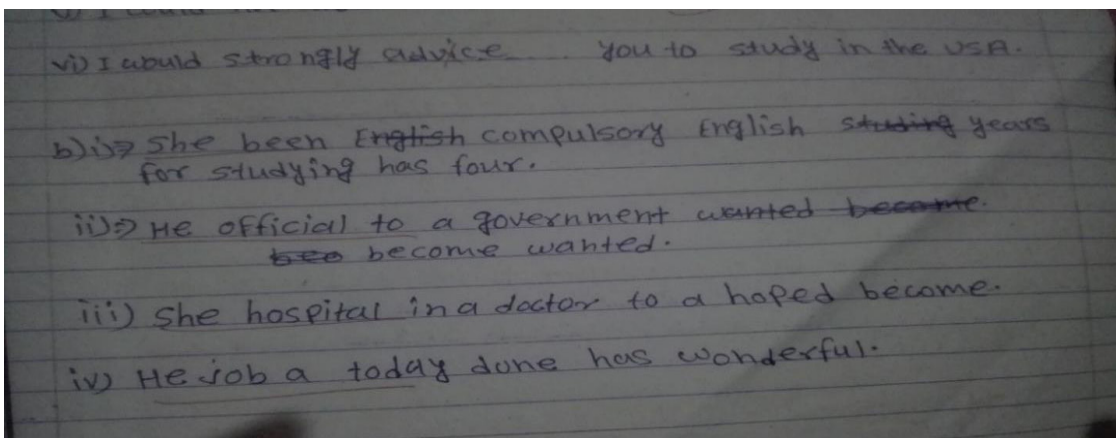 vi) I would strongly advice ... you to study in the USA.
b) i)⇒ She been English compulsory English studing years
for studying has four.
ii)⇒ He official to a government wanted become.
bee become wanted.
iii) She hospital in a doctor to a hoped become.
iv) He job a today done has wonderful.